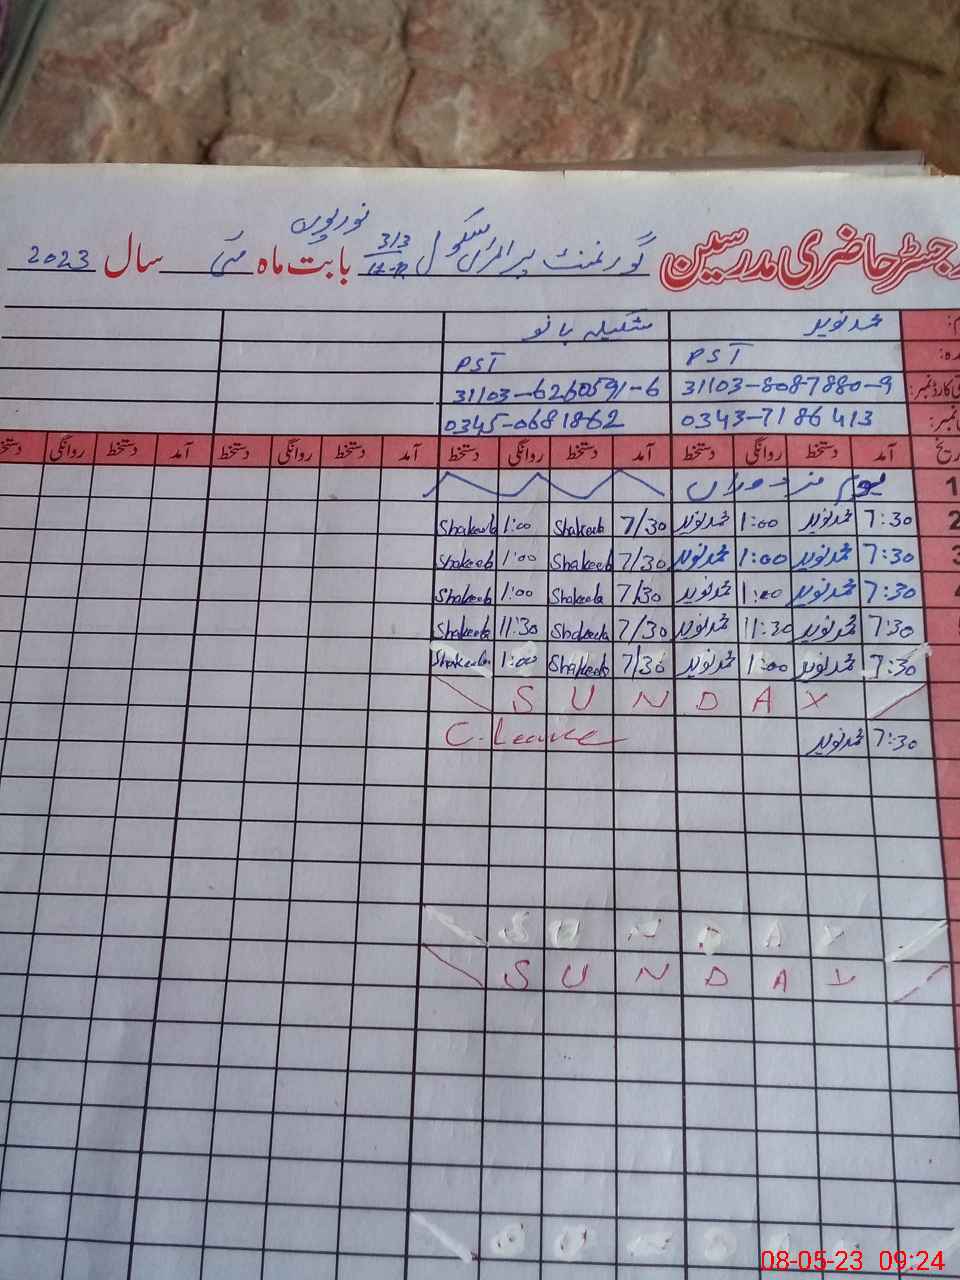 نور پور
رجسٹر حاضری مدرسین گورنمنٹ پرائمری سکول 313 بابت ماہ مئی سال 2023
محمد نوید شکیلہ بانو
PST PST
31103-8087880-9 31103-6260591-6
0343-7186413 0345-0681862
آمد دستخط روانگی دستخط آمد دستخط روانگی دستخط آمد دستخط روانگی دستخط آمد دستخط روانگی دستخط
1 یوم مزدوراں
2 7:30 محمد نوید 1:00 محمد نوید 7/30 Shakeela 1:00 Shakeela
3 7:30 محمد نوید 1:00 محمد نوید 7/30 Shakeela 1:00 Shakeela
7:30 محمد نوید 1:00 محمد نوید 7/30 Shakeela 1:00 Shakeela
7:30 محمد نوید 11:30 محمد نوید 7/30 Shakeela 11:30 Shakeela
7:30 محمد نوید 1:00 محمد نوید 7/30 Shakeela 1:00 Shakeela
S U N D A Y
7:30 محمد نوید C. Leave
S U N D A Y
S U N D A Y
08-05-23 09:24